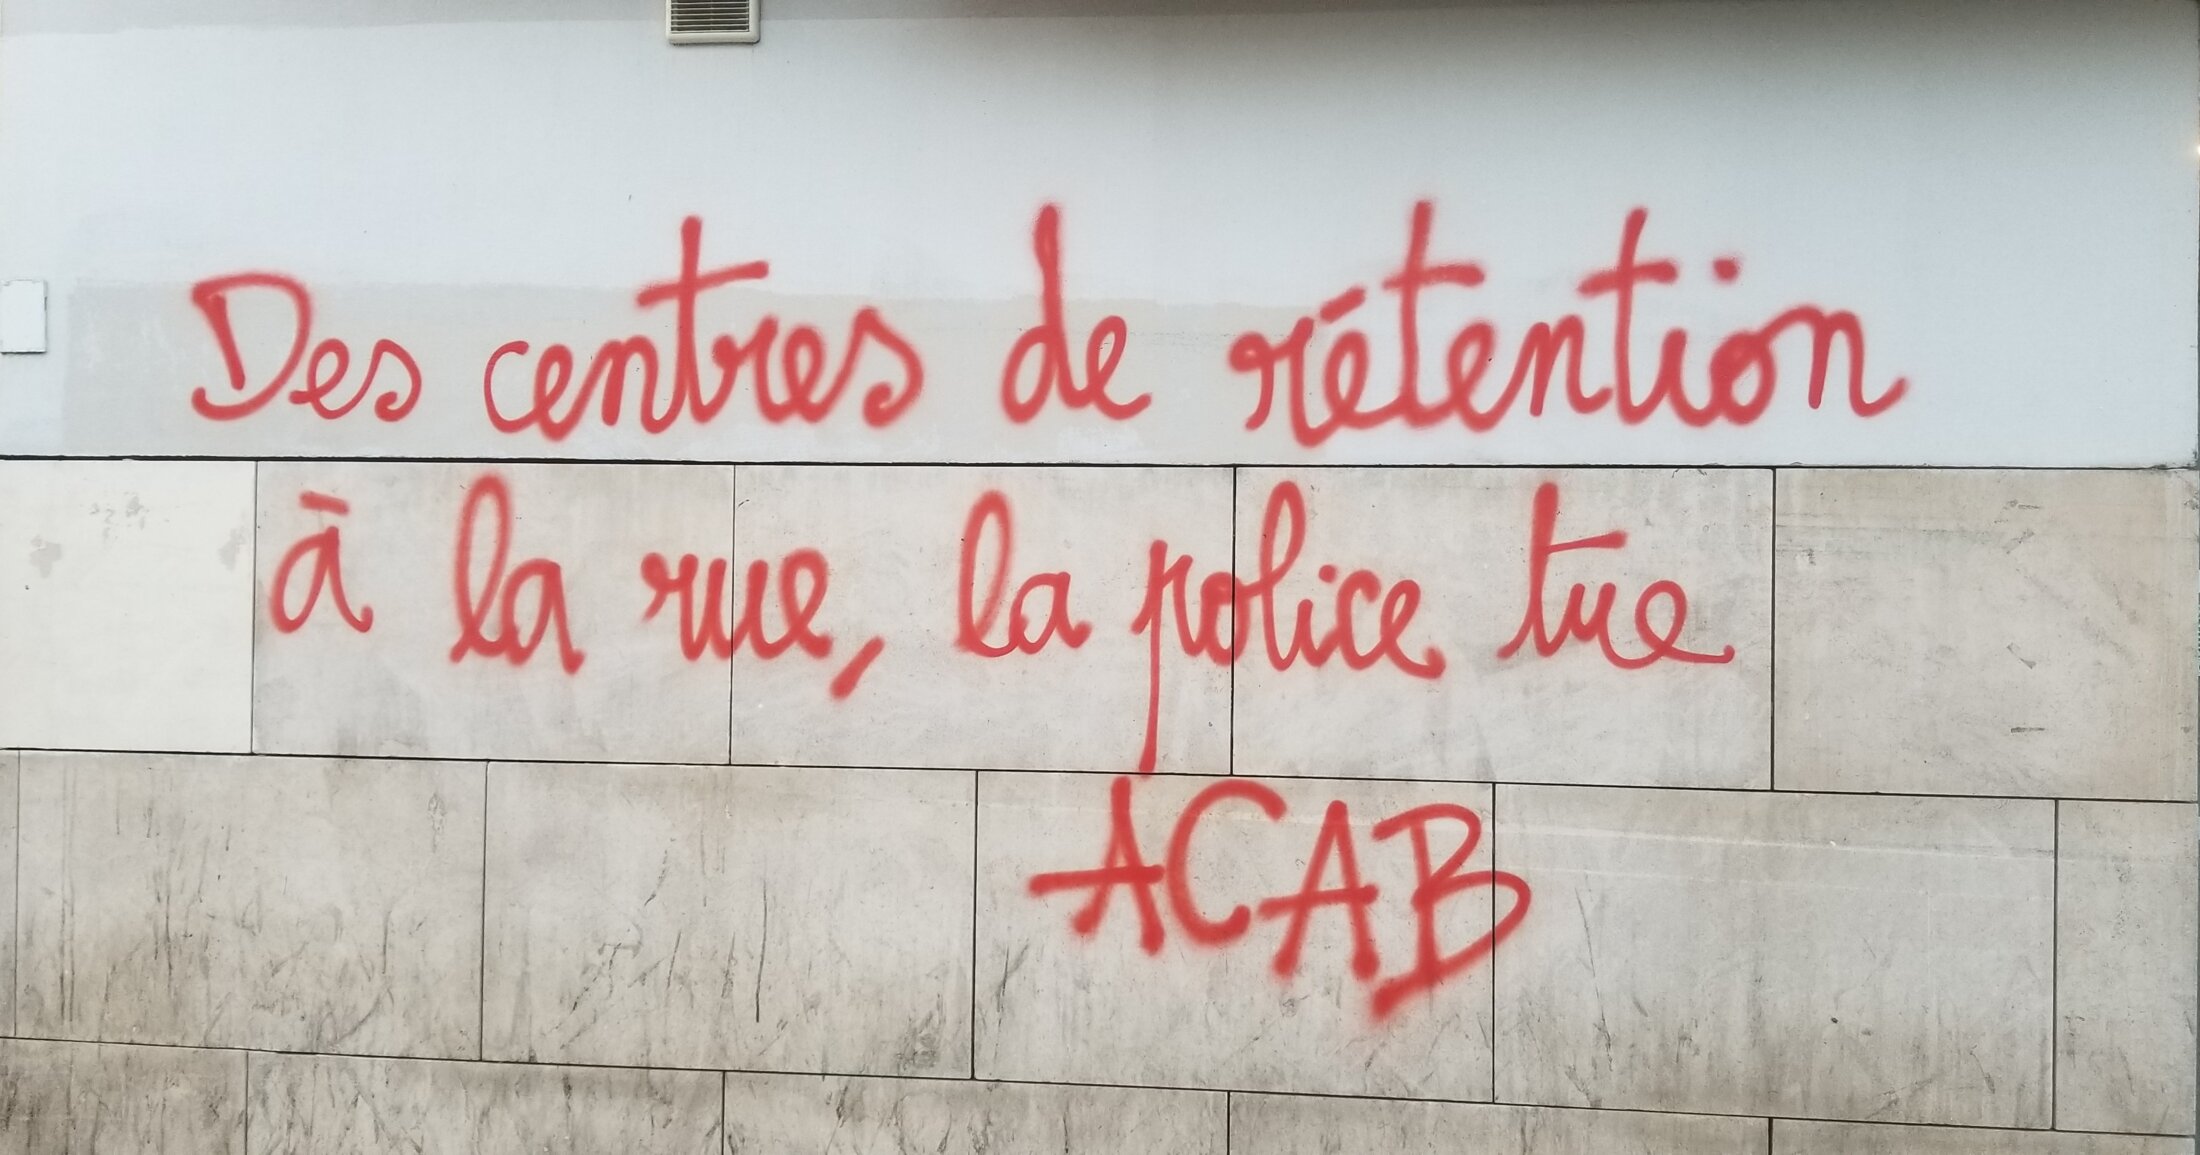 Des centres de rétention
à la rue, la police tue
ACAB